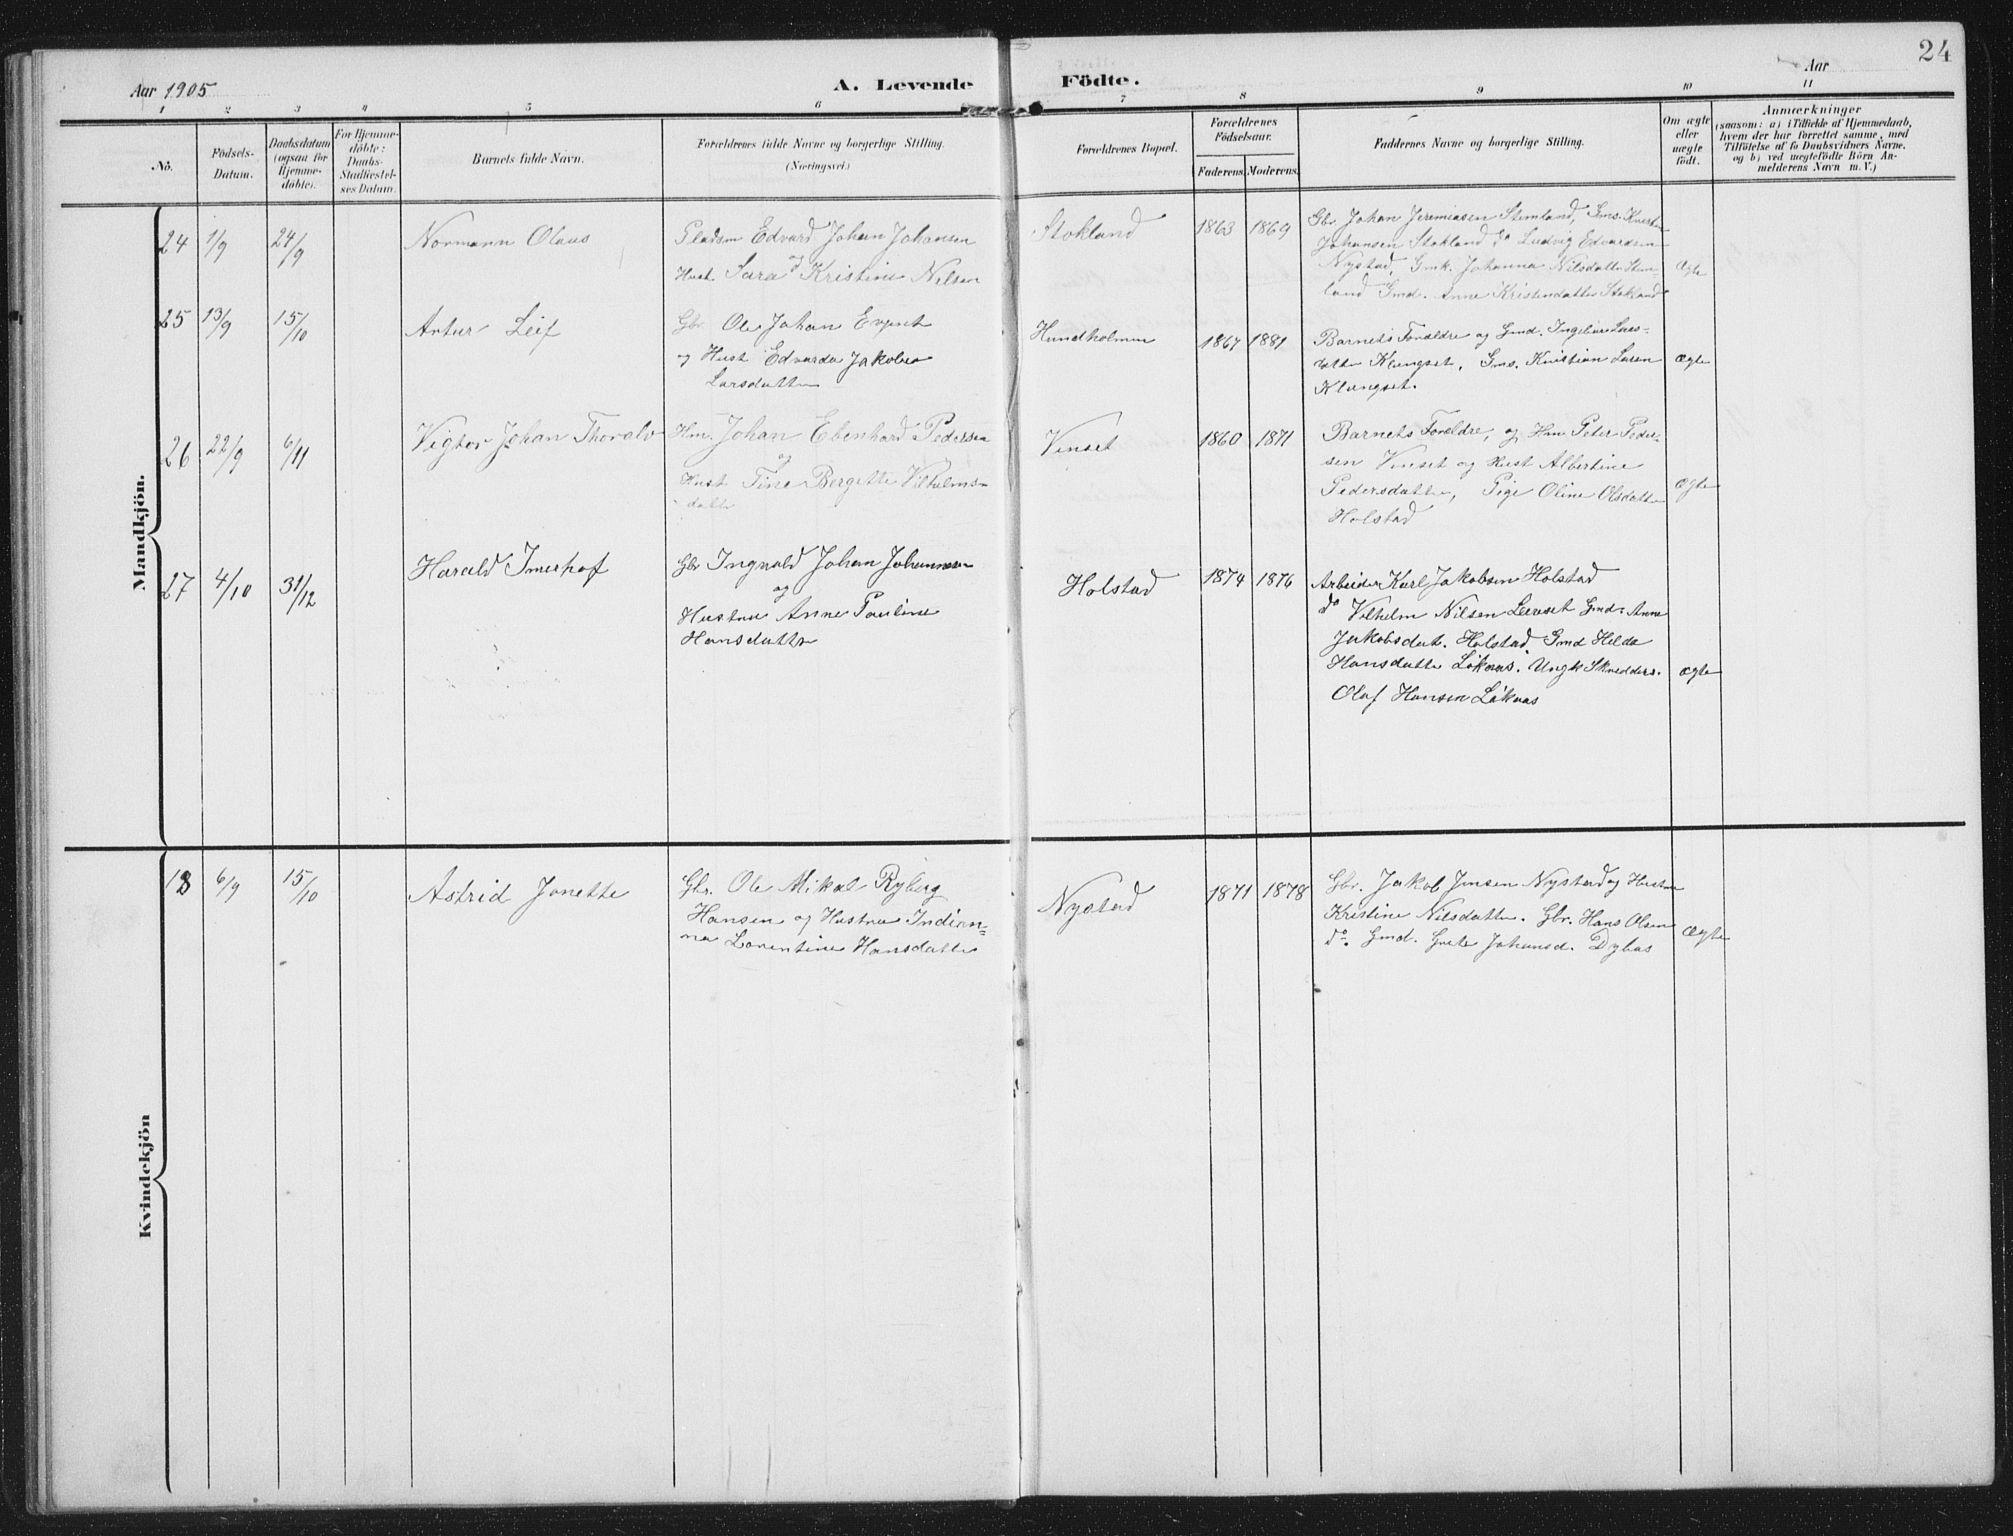 24
Aar 1905
A. Levende Födte.
Aar
1 2 3 4 5 6 7 8 9 10 11
No.
Födsels-
Datum.
Daabsdatum
(ogsaa for
Hjemme-
döbte).
For Hjemme-
döbte:
Daabs-
Stadfæstel-
ses Datum.
Barnets fulde Navn.
Forældrenes fulde Navne og borgerlige Stilling.
(Næringsvei.)
Forældrenes Bopæl.
Forældrenes
Födselsaar.
Faderens. Moderens.
Faddernes Navne og borgerlige Stilling.
Om ægte
eller
uægte
födt.
Anmærkninger
(saasom: a) i Tilfælde af Hjemmedaab,
hvem der har forrettet samme, med
Tilföielse af to Daabsvidners Navne.
og b) ved uægtefödte Börn An-
melderens Navn m. V.)
Mandkjön.
24 1/9 24/9
Normann Olaus
Pladsm Edvard Johan Johansen
og
Hust. Sara Kristine Nilsen
Stokland
1863 1869
Gbr Johan Jeremiasen Stemland, Gms.
Johansen Stokland do Ludvig Edvardsen
Nystad, Gmk. Johanna Nilsdatter Stem-
land Gmd. Anne Kristensdatter Stokland
Ægte
25 13/9 15/10
Artur Leif
Gbr Ole Johan
og Hust Edvarda Jakobea
Larsdatter
Hundholmen
1867 1881
Barnets Foreldre og Gmd. Lars-
datter Klungset, Gms. Kristian Larsen
Klungset.
Ægte
26 22/9 6/11
Vigtor Johan Thoralv
Hm. Johan Ebenhard Pedersen
og
Hust Tine Bergitte Vilhelms-
datter
Vinset
1860 1871
Barnets Foreldre, og Hm Peter Peder-
sen Vinset og Hust Albertine
Pedersdatter, Pige Oline Olsdatter
Holstad
Ægte
27 4/10 31/12
Harald Imerhof
Gbr Ingvald Johan Johannesen
og
Hustru Anne Pauline
Hansdatter
Holstad
1874 1876
Arbeider Karl Jakobsen Holstad
do Vilhelm Nilsen Leivset Gmd. Anne
Jakobsdat. Holstad, Gmd Helda
Hansdatter Løkaas. Ungk Skrædders.
Olaf Hansen Løkaas
Ægte
Kvindekjön
18 6/9 15/10
Astrid Jonette
Gbr. Ole Mikal Ryberg
Hansen og Hustru Indian-
na Lorentine Hansdatter
Nystad
1871 1878
Gbr. Jakob Jensen Nystad og Hustru
Kristine Nilsdatter. Gbr. Hans Olsen
do. Gmd. Grete Johansd. Dybas
Ægte